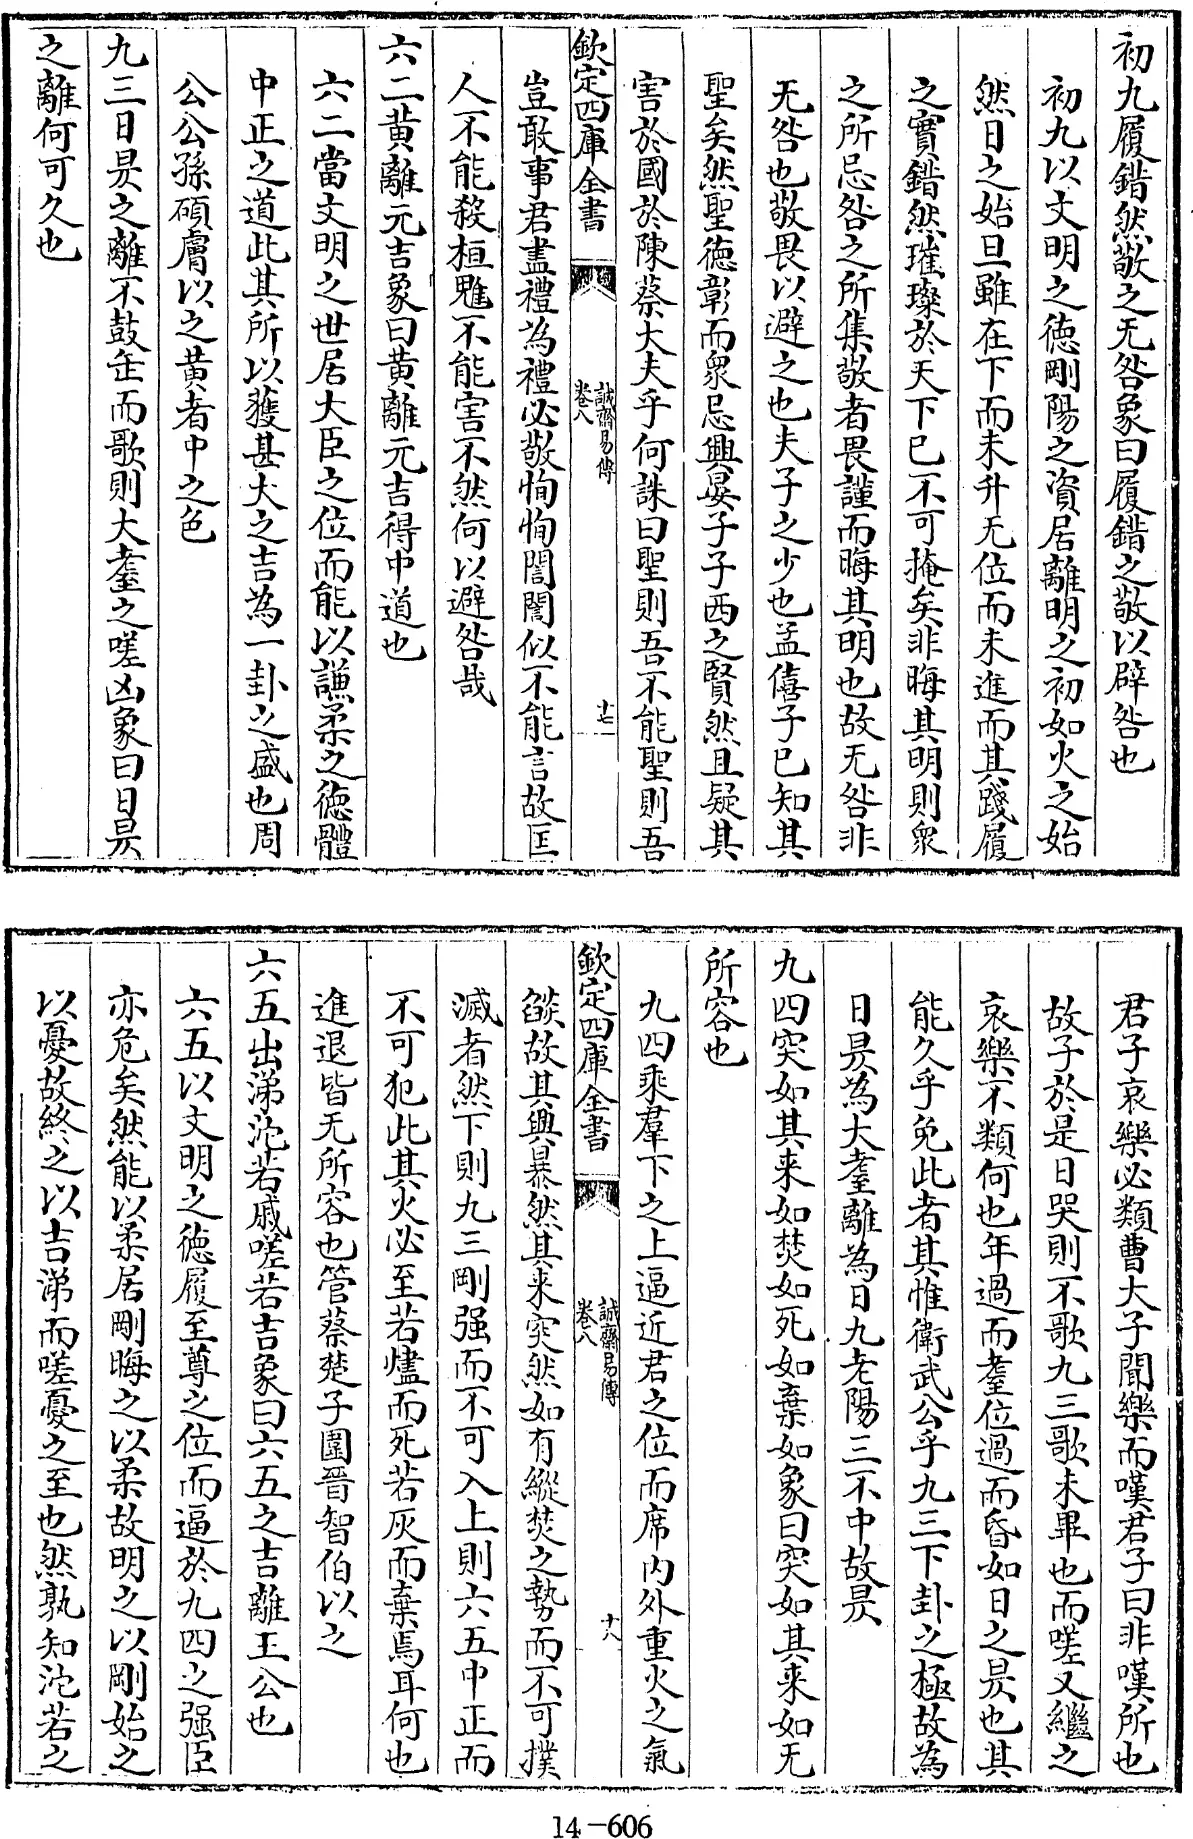 初九履錯然敬之无咎象曰履錯之敬以辟咎也
初九以文明之德剛陽之資居離明之初如火之始
然日之始旦雖在下而未升无位而未進而其踐履
之實錯然璀璨於天下已不可掩矣非晦其明則衆
之所忌咎之所集敬者畏謹而晦其明也故无咎非
无咎也敬畏以避之也夫子之少也孟僖子已知其
聖矣然聖德彰而衆忌興晏子子西之賢然且疑其
害於國於陳蔡大夫乎何誅曰聖則吾不能聖則吾
欽定四庫全書
誠齋易傳
卷八
十七
豈敢事君盡禮為禮必敬恂恂誾誾似不能言故匡
人不能殺桓魋不能害不然何以避咎哉
六二黄離元吉象曰黄離元吉得中道也
六二當文明之世居大臣之位而能以謙柔之德體
中正之道此其所以獲甚大之吉為一卦之盛也周
公公孫碩膚以之黄者中之色
九三日昃之離不鼓缶而歌則大耋之嗟凶象曰日昃
之離何可久也
君子哀樂必類曹大子聞樂而嘆君子曰非嘆所也
故子於是日哭則不歌九三歌未畢也而嗟又繼之
哀樂不類何也年過而耋位過而昏如日之昃也其
能久乎免此者其惟衛武公乎九三下卦之極故為
日昃為大耋離為日九老陽三不中故昃
九四突如其来如焚如死如棄如象曰突如其来如无
所容也
九四乘羣下之上逼近君之位而席内外重火之氣
欽定四庫全書
誠齋易傳
卷八
十八
燄故其興暴然其来突然如有縱焚之勢而不可撲
滅者然下則九三剛强而不可入上則六五中正而
不可犯此其火必至若燼而死若灰而棄焉耳何也
進退皆无所容也管蔡楚子圍晉智伯以之
六五出涕沱若戚嗟若吉象曰六五之吉離王公也
六五以文明之德履至尊之位而逼於九四之强臣
亦危矣然能以柔居剛晦之以柔故明之以剛始之
以憂故終之以吉涕而嗟憂之至也然孰知沱若之
14-606